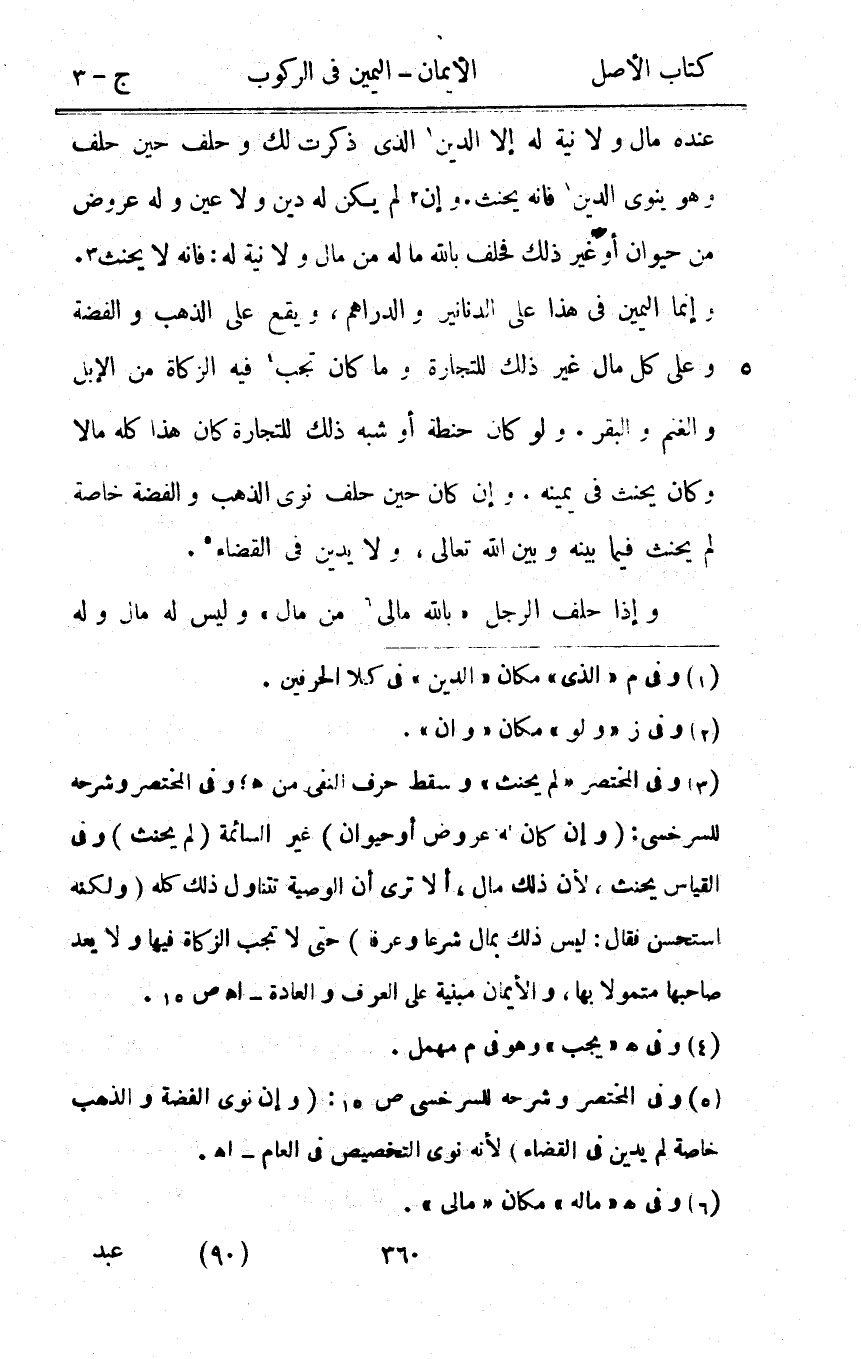 كتاب الأصل الأيمان – اليمين فى الركوب ج – ٣
عنده مال و لا نية له إلا الدين١ الذى ذكرت لك و حلف حين حلف
و هو ينوى الدين١ فانه يحنث. و إن٢ لم يكن له دين و لا عين و له عروض
من حيوان أو غير ذلك فحلف بالله ما له من مال و لا نية له: فانه لا يحنث٣.
و إنما اليمين فى هذا على الدنانير و الدراهم، و يقع على الذهب و الفضة
٥ و على كل مال غير ذلك للتجارة و ما كان تجب٤ فيه الزكاة من الإبل
و الغنم و البقر. و لو كان حنطة أو شبه ذلك للتجارة كان هذا كله مالا
وكان يحنث فى يمينه. و إن كان حين حلف نوى الذهب و الفضة خاصة
لم يحنث فيما بينه و بين الله تعالى، و لا يدين فى القضاء٥.
و إذا حلف الرجل «بالله مالى٦ من مال» و ليس له مال و له
(١) و فى م «الذى» مكان «الدين» فى كلا الحرفين.
(٢) و فى ز «و لو» مكان «و ان».
(٣) و فى المختصر «لم يحنث» و سقط حرف النفى من ه؛ و فى المختصر و شرحه
للسرخسى: (و إن كان له عروض أو حيوان) غير السائمة (لم يحنث) و فى
القياس يحنث، لأن ذلك مال، ألا ترى أن الوصية تتناول ذلك كله (ولكنه
استحسن فقال: ليس ذلك بمال شرعا وعرفا) حتى لا تجب الزكاة فيها و لا يعد
صاحبها متمولا بها، و الأيمان مبنية على العرف و العادة – اه ص ١٥.
(٤) و فى ه «يجب» وهو فى م مهمل.
(٥) و فى المختصر و شرحه للسرخسى ص ١٥: (و إن نوى الفضة و الذهب
خاصة لم يدين فى القضاء) لأنه نوى التخصيص فى العام – اه.
(٦) و فى ه «ماله» مكان «مالى».
٣٦٠ (٩٠) عبد